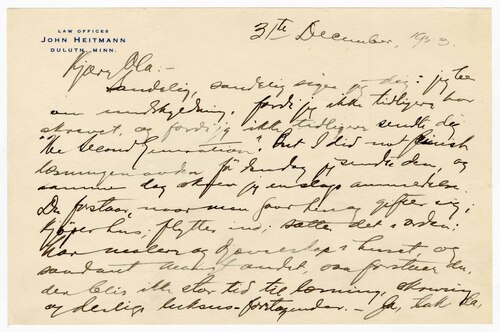 LAW OFFICES
JOHN HEITMANN
DULUTH, MINN.
3 Th December, 1923.
Kjære Ola:-
Sandelig, sandelig siger jeg dig: jeg ber
om undskyldning, fordi jeg ikke tidligere har
skrevet, og fordi jeg ikke tidligere sendte dig
"the Second Generation". But I did not finish
læsningen før søndag jeg sendte den, og
samme dag skrev jeg en slags anmeldelse.
Du forstaar, naar man gaar hen og gifter sig;
kjøper hus; flytter ind; sætter det i orden;
har og i huset og
saadant meget andet, saa forstaar du,
der blir ikke stor tid til læsning, skrivning
og deslige luksus-foretagender. - Ja, tak da.